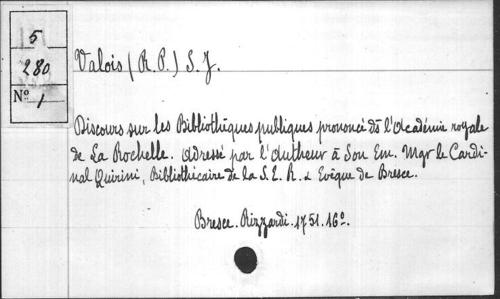 5
280
Nº 1
Valois (R. P.) S. J.
Discours sur les Bibliothèques publiques prononcé ds l'Académie royale
de La Rochelle. Adressé par l'Autheur à Son Em. Mgr le Cardi-
nal Quirini, Bibliothécaire de la S. E. R. & Evêque de Bresce.
Bresce. Rizzardi. 1751. 16º.